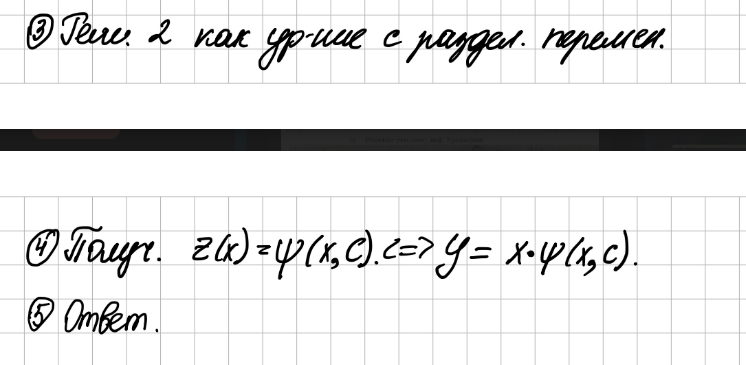 ③ Реши. 2 как ур-ние с раздел. перемен.
④ Получ. z(x) = ψ(x, C). <=> y = x·ψ(x, c).
⑤ Ответ.